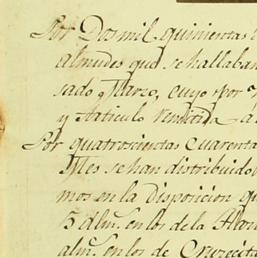 Por Dosmil quinientas
almudes que se hallaban
sado y Marzo, cuyo por
y Articulo remitida a
Por quatrocientas cuarenta
se han distribuido
mos en la disposicion qu
5 alm.s en los de la
alm.s en los de